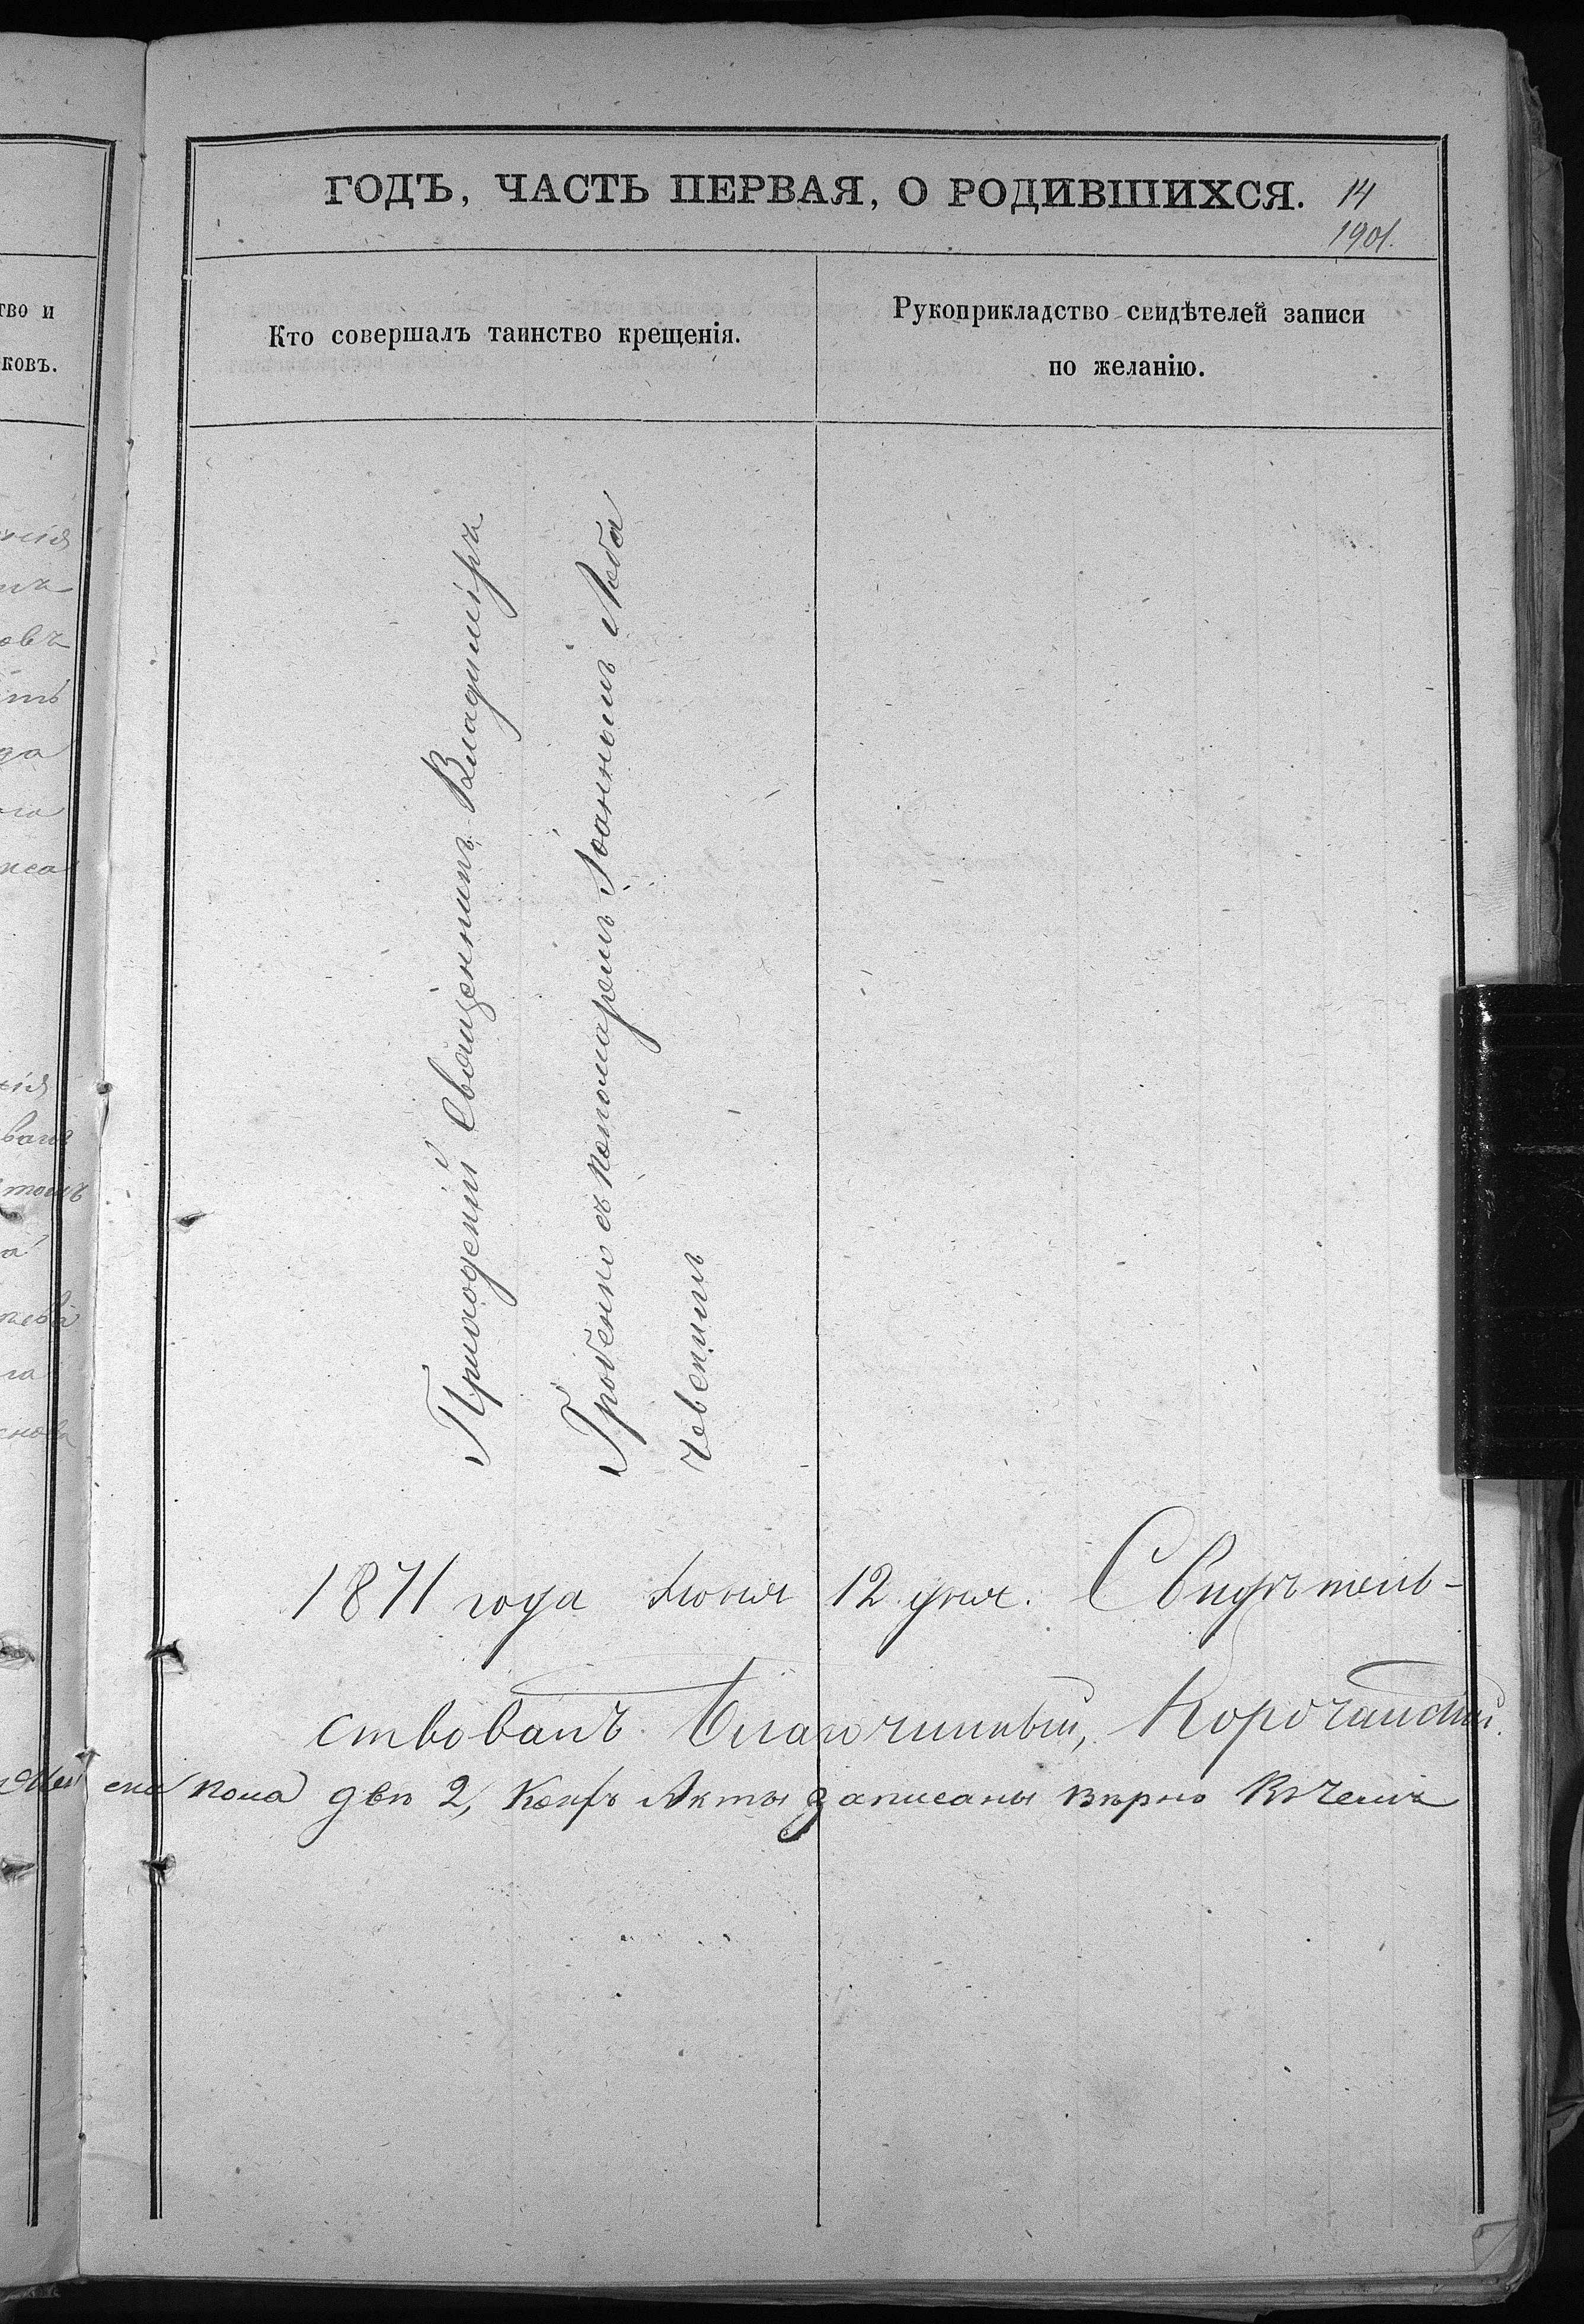 ГОДЪ, ЧАСТЬ ПЕРВАЯ, О РОДИВШИХСЯ. 14
1901.
тво и
ковъ.
Кто совершалъ таинство крещенія.
Рукоприкладство свидѣтелей записи
по желанію.
Приходскій Священникъ Владиміръ
Гробенко съ пономаремъ Іоанномъ Люба
чевскимъ
1871 года Іюня 12 дня. Свидѣтель-
ствовалъ Благочинный, Корочанскій.
пола два 2, Акты записаны вѣрно въ чемъ